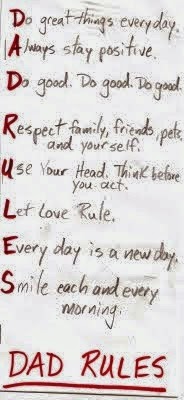 Do great things everyday.
Always stay positive.
Do good. Do good. Do good.
Respect family, friends, pets,
and yourself.
Use Your Head. Think before
you act.
Let Love Rule.
Every day is a new day.
Smile each and every
morning.
DAD RULES